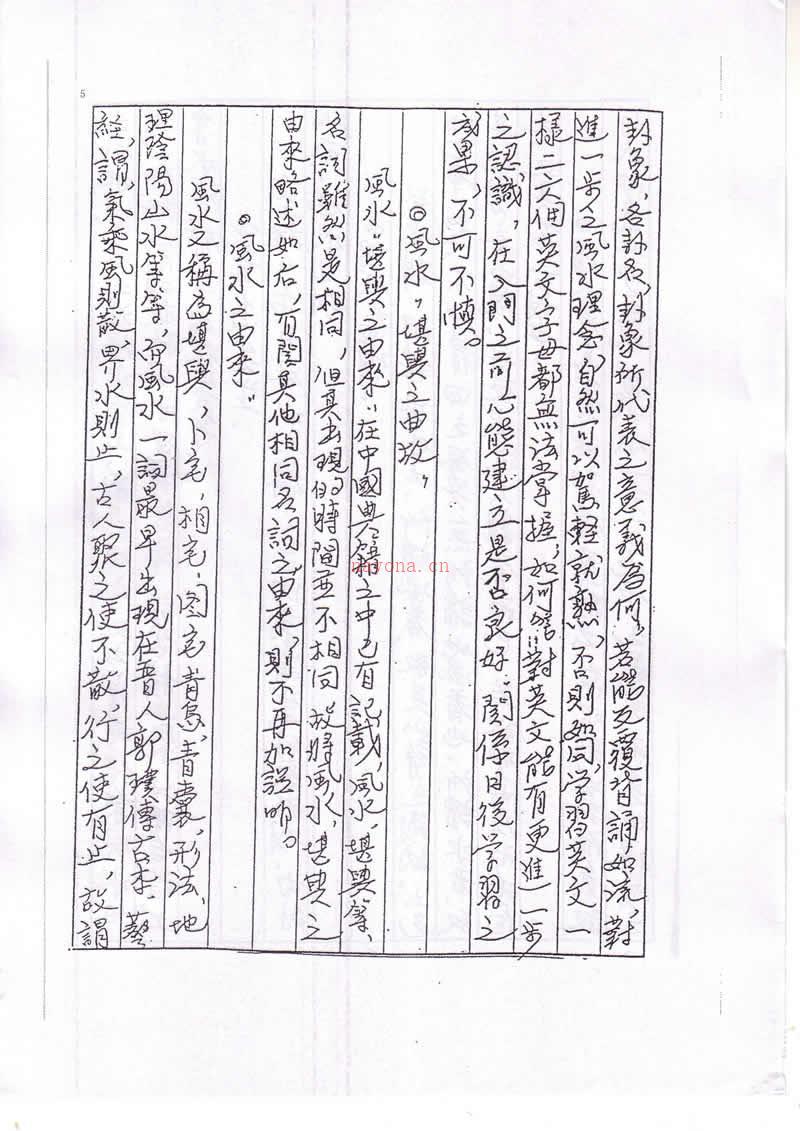 5
卦象，各卦名，卦象所代表之意義為何，若能反覆背誦如流，對
進一步之風水理念，自然可以駕輕就熟，否則如同學習英文一
樣二六個英文字母都無法掌握，如何能對英文能有更進一步
之認識，在入門之前心態建立是否良好，關係日後學習之
效果，不可不慎。
◎風水，堪輿之典故，
風水，堪輿之由來，在中國典籍之中已有記載，風水，堪輿等，
名詞雖然是相同，但其出現的時間並不相同，故將風水，堪輿之
由來略述如后，有關其他相同名詞之由來，則不再加說明。
◎風水之由來。
風水又稱為堪輿，卜宅，相宅，圖宅，青烏，青囊，形法，地
理陰陽山水等等，而風水一詞最早出現在晉人郭璞傳古本，葬
經，謂，氣乘風則散，界水則止，古人聚之使不散，行之使有止，故謂
nayona.cn